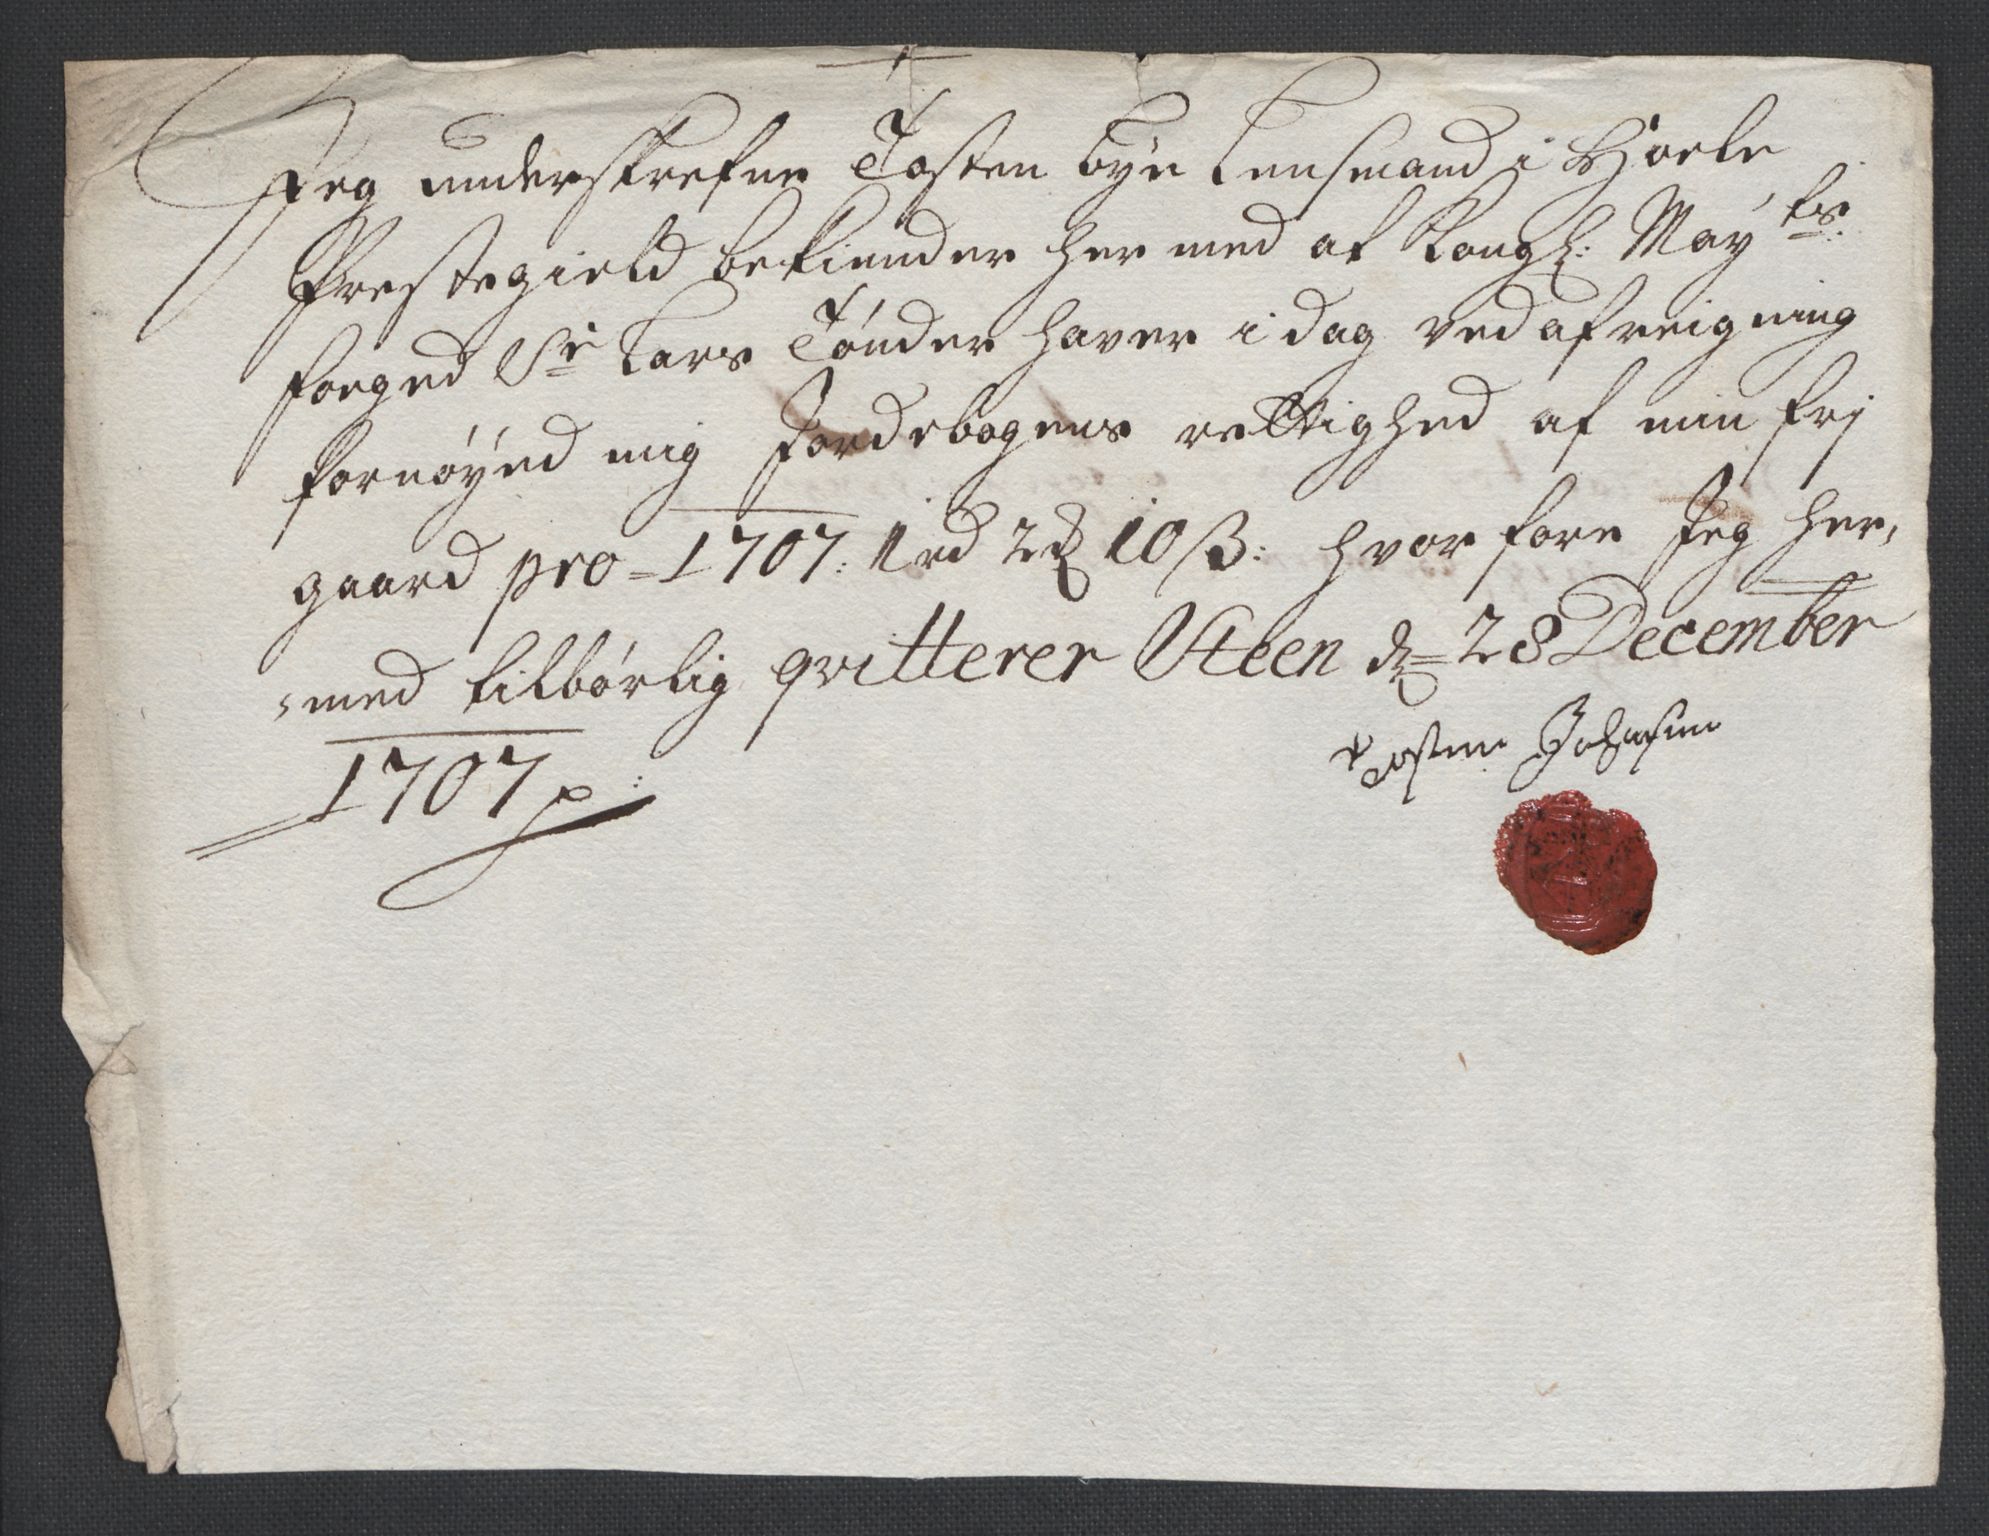 Jeg underskrefne Tosten bye Lensmand i Hoele
Prestegield bekiender her med at Kongl: May ts:
foeged Sr Lars Tønder haver i dag ved afreigning
fornøyed mig Jordebogens rettighed af min frj
gaard pro 1707: 1 rd 2 10 ß: hvor fore Jeg her,
med tilbørlig qvitterer Steen d 28 December
1707 p:
Tosten Johansen